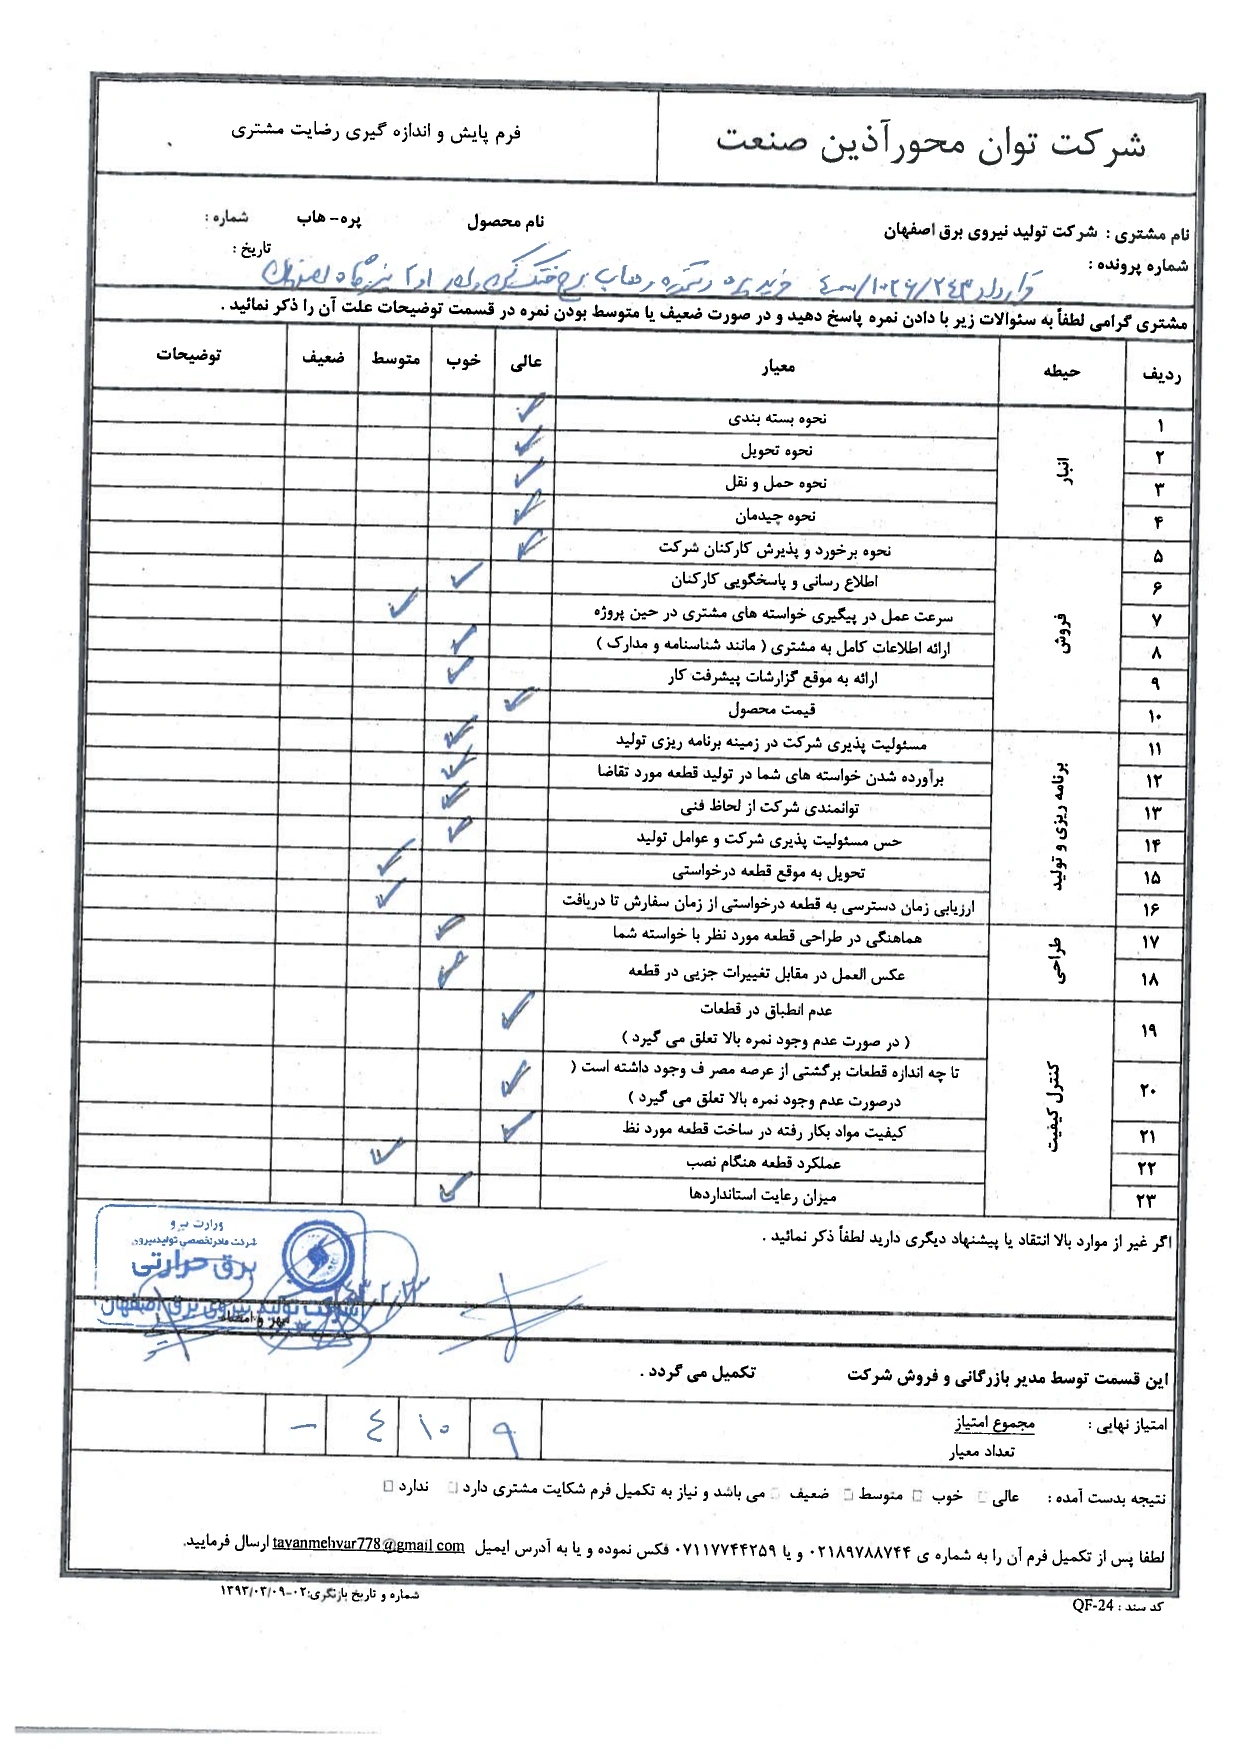 شرکت توان محورآذین صنعت
فرم پایش و اندازه گیری رضایت مشتری
نام مشتری : شرکت تولید نیروی برق اصفهان نام محصول پره- هاب شماره :
شماره پرونده : تاریخ :
قرارداد خرید پره
مشتری گرامی لطفاً به سئوالات زیر با دادن نمره پاسخ دهید و در صورت ضعیف یا متوسط بودن نمره در قسمت توضیحات علت آن را ذکر نمائید .
ردیف حیطه معیار عالی خوب متوسط ضعیف توضیحات
انبار
۱ نحوه بسته بندی ✓
۲ نحوه تحویل ✓
۳ نحوه حمل و نقل ✓
۴ نحوه چیدمان ✓
فروش
۵ نحوه برخورد و پذیرش کارکنان شرکت ✓
۶ اطلاع رسانی و پاسخگویی کارکنان ✓
۷ سرعت عمل در پیگیری خواسته های مشتری در حین پروژه ✓
۸ ارائه اطلاعات کامل به مشتری ( مانند شناسنامه و مدارک ) ✓
۹ ارائه به موقع گزارشات پیشرفت کار ✓
۱۰ قیمت محصول ✓
برنامه ریزی و تولید
۱۱ مسئولیت پذیری شرکت در زمینه برنامه ریزی تولید ✓
۱۲ برآورده شدن خواسته های شما در تولید قطعه مورد تقاضا ✓
۱۳ توانمندی شرکت از لحاظ فنی ✓
۱۴ حس مسئولیت پذیری شرکت و عوامل تولید ✓
۱۵ تحویل به موقع قطعه درخواستی ✓
۱۶ ارزیابی زمان دسترسی به قطعه درخواستی از زمان سفارش تا دریافت ✓
طراحی
۱۷ هماهنگی در طراحی قطعه مورد نظر با خواسته شما ✓
۱۸ عکس العمل در مقابل تغییرات جزیی در قطعه ✓
کنترل کیفیت
۱۹ عدم انطباق در قطعات ✓
( در صورت عدم وجود نمره بالا تعلق می گیرد )
۲۰ تا چه اندازه قطعات برگشتی از عرصه مصر ف وجود داشته است ( ✓
درصورت عدم وجود نمره بالا تعلق می گیرد )
۲۱ کیفیت مواد بکار رفته در ساخت قطعه مورد نظ ✓
۲۲ عملکرد قطعه هنگام نصب ✓
۲۳ میزان رعایت استانداردها ✓
اگر غیر از موارد بالا انتقاد یا پیشنهاد دیگری دارید لطفاً ذکر نمائید .
وزارت نیرو
شرکت مادرتخصصی تولید نیروی
برق حرارتی
شرکت تولید نیروی برق اصفهان
مهر و امضاء
این قسمت توسط مدیر بازرگانی و فروش شرکت تکمیل می گردد .
امتیاز نهایی : مجموع امتیاز ۹ ۱۰ ٤ –
تعداد معیار
نتیجه بدست آمده : عالی □ خوب □ متوسط □ ضعیف □ می باشد و نیاز به تکمیل فرم شکایت مشتری دارد □ ندارد □
لطفا پس از تکمیل فرم آن را به شماره ی ۰۲۱۸۹۷۸۸۷۴۴ و یا ۰۷۱۱۷۷۴۴۲۵۹ فکس نموده و یا به آدرس ایمیل tavanmehvar778@gmail.com ارسال فرمایید.
کد سند : QF-24
شماره و تاریخ بازنگری:۰۲-۱۳۹۳/۰۲/۰۹